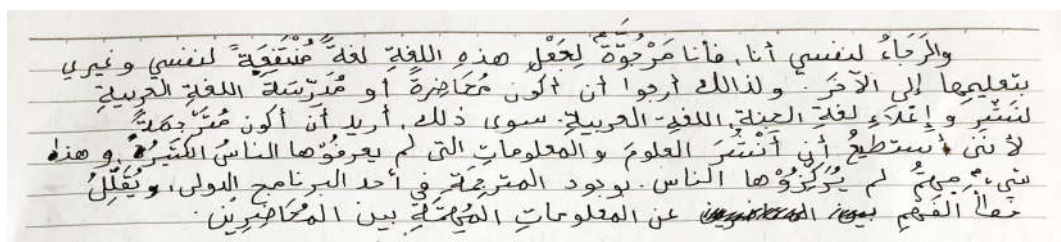 والرَجَاءُ لنفسي أنا، فأنا مَرْجُوَّةٌ لِجَعْلِ هذهِ اللغةِ لغةً مُنْتَفِعَةً لنفسي وغيري
بتعليمِها إلى الآخَرِ. ولذالك أرجوا أن أكون مُحَاضِرةً أو مُدَرِّسَةَ اللغةِ العربيةِ
لنَشْرِ و إِعْلَاءِ لغةِ الجنةِ، اللغةِ العربيةِ. سوى ذلك، أريد أن أكون مُتَرْجِمَةً
لأنّنَى أستطيعُ أن أَنْتَشُرَ العلومَ و المعلوماتِ التى لم يعرفوْها الناسُ الكَثِيْرُ، و هذه
شيءٌ مهمٌّ لم يُرَكِّزُوْها الناس. بوجود المترجِمَةِ في أحد البرنامج الدولى، و يُقَلِّلُ
خطأَ الفَهْمِ بين عن المعلوماتِ المُهِمَّةِ بين المُحَاضِرِيْنَ.